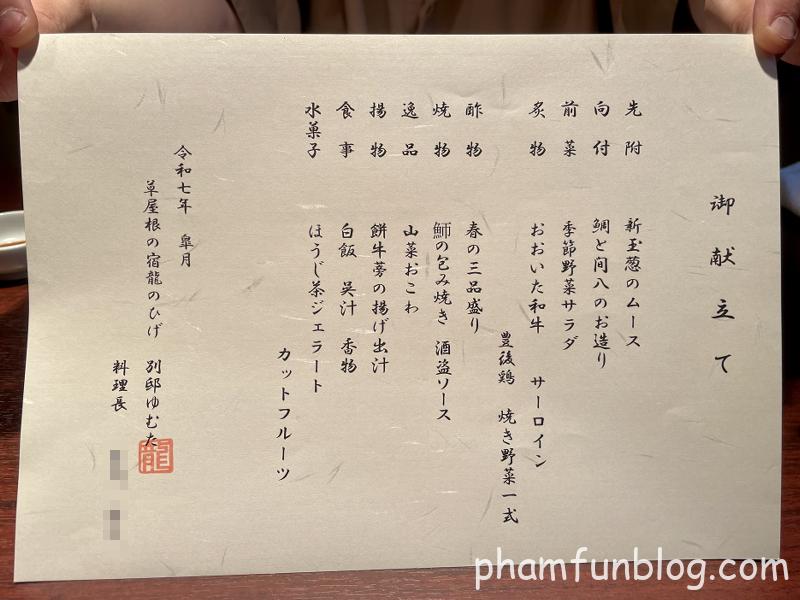 御献立て
先附 新玉葱のムース
向付 鯛と间八のお造り
前菜 季節野菜サラダ
炙物 おおいた和牛 サーロイン
豊後鶏 焼き野菜一式
酢物 春の三品盛り
焼物 鰤の包み焼き 酒盗ソース
逸品 山菜おこわ
揚物 餅牛蒡の揚げ出汁
食事 白飯 呉汁 香物
水菓子 ほうじ茶ジェラート
カットフルーツ
令和七年 皐月
草屋根の宿龍のひげ 別邸ゆむた
料理長
龍
phamfunblog.com